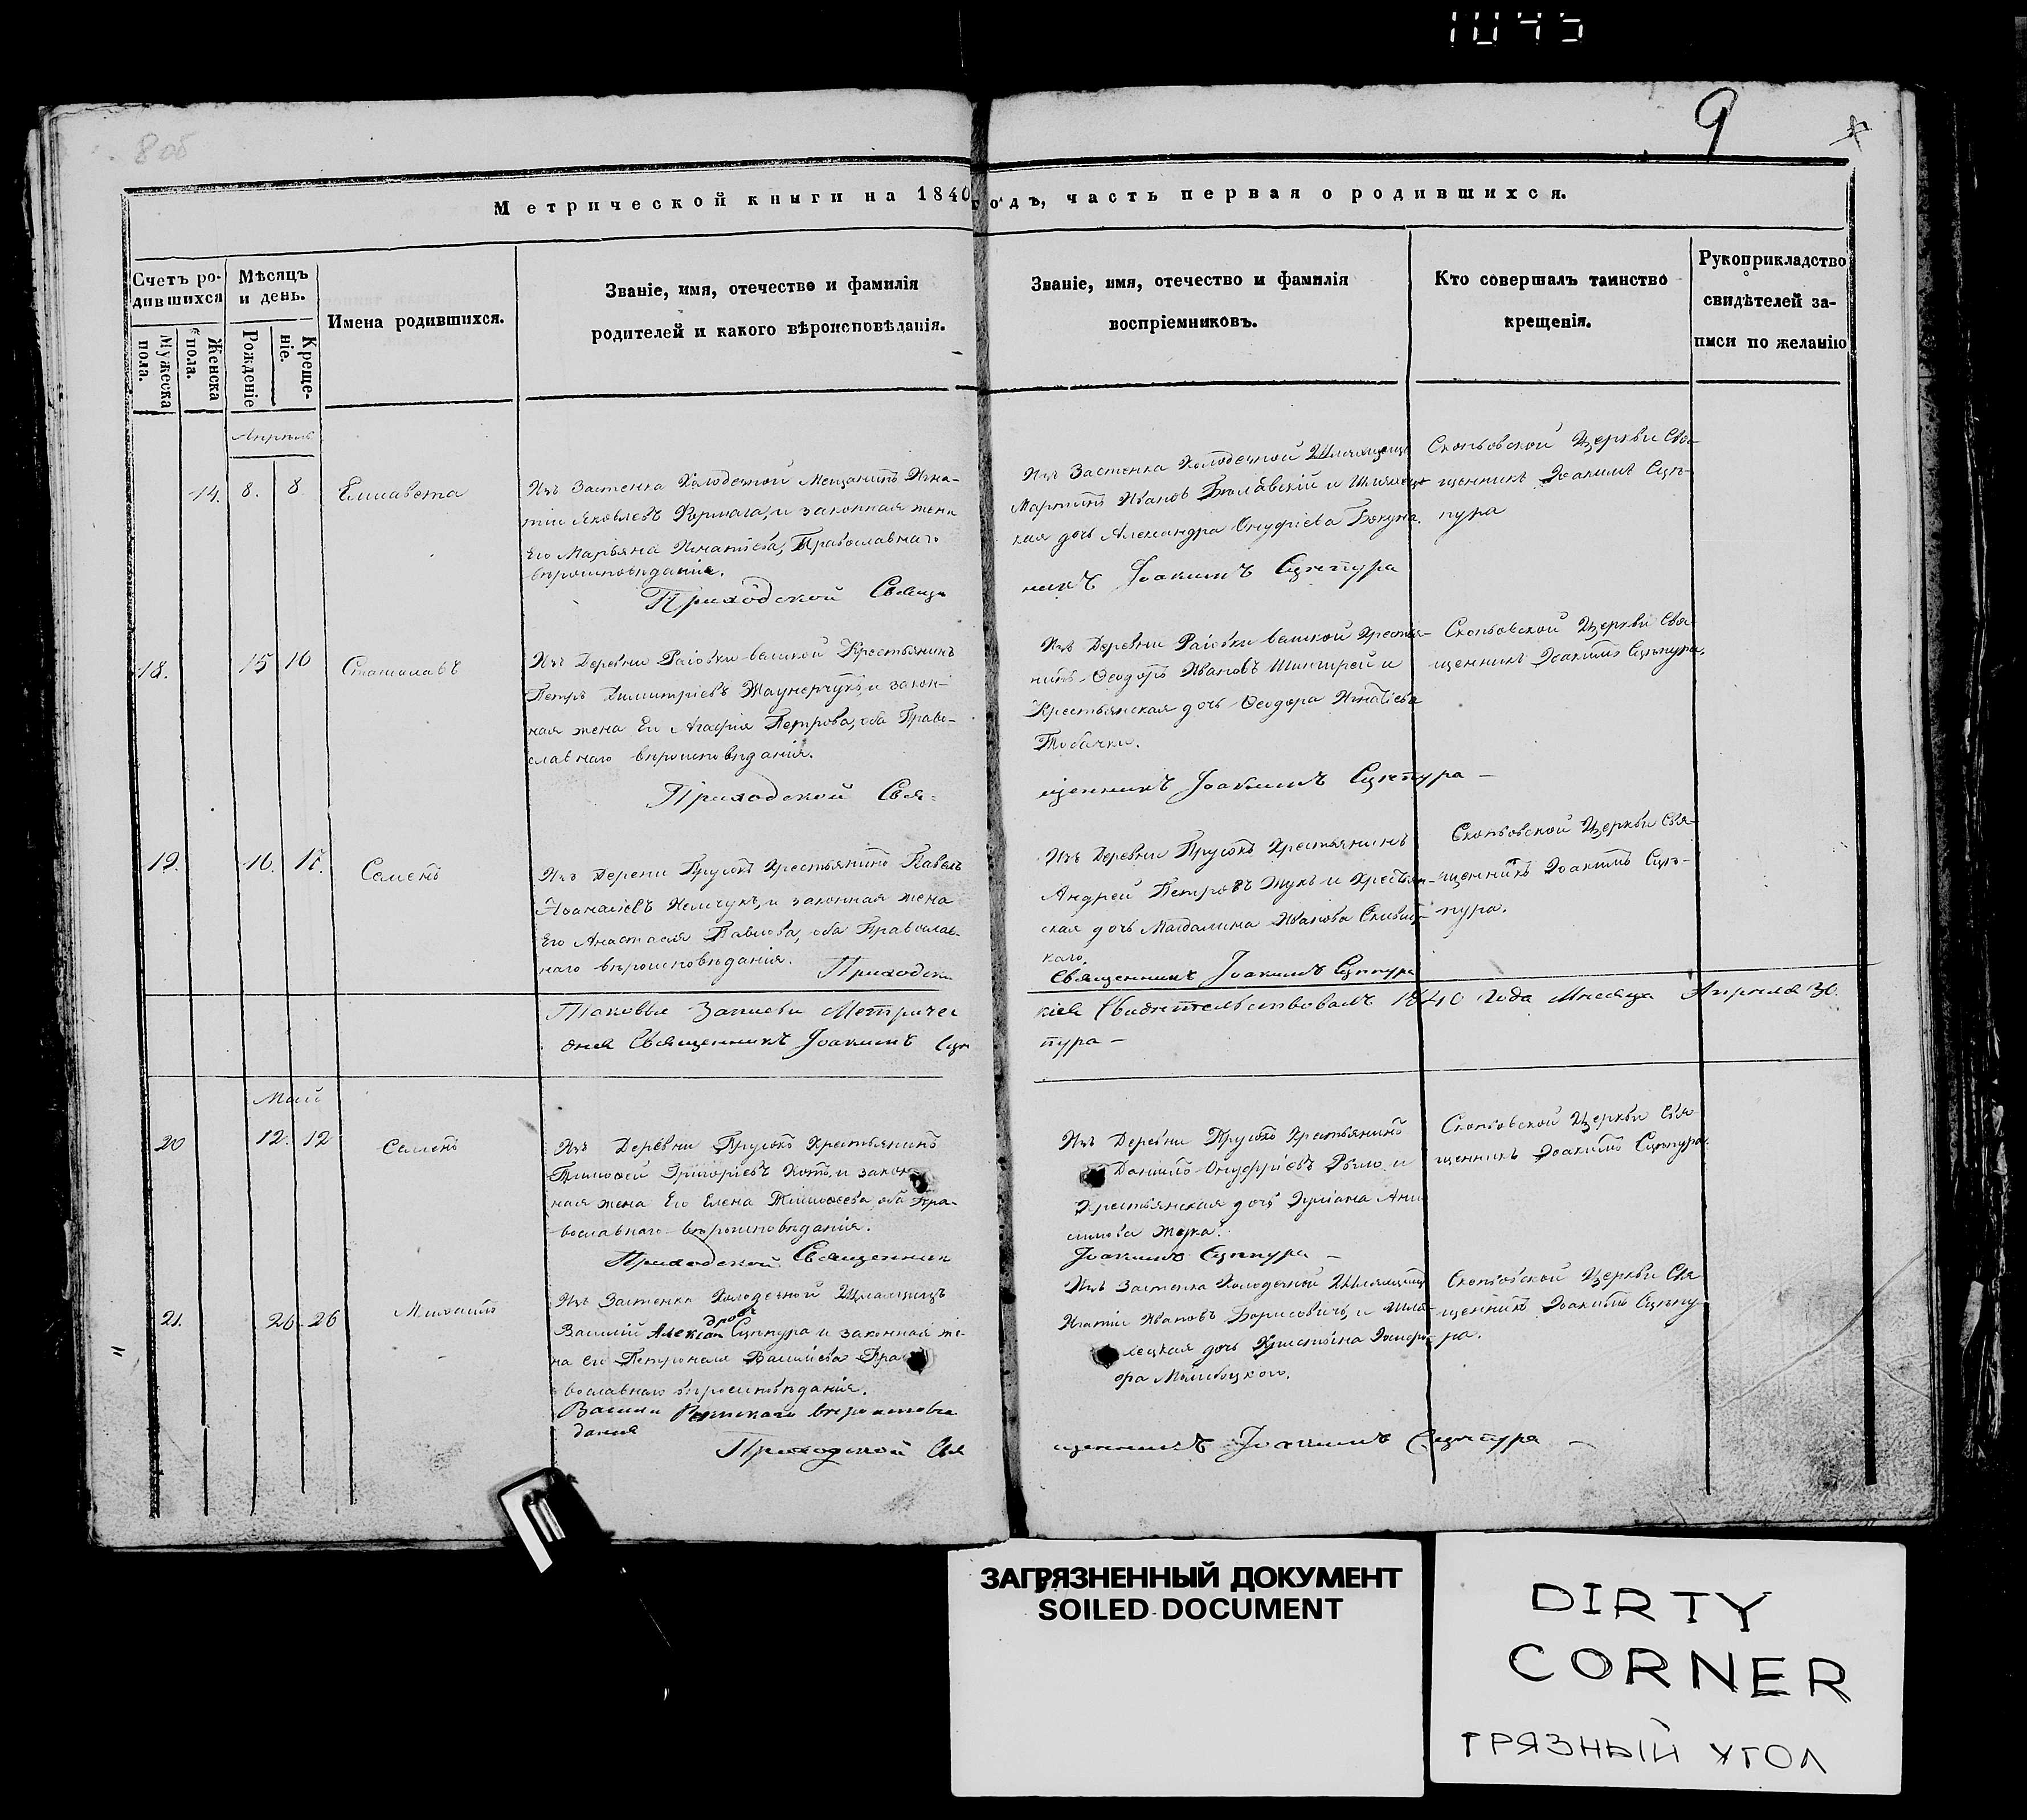 1045
8 об
9
Метрической книги на 1840 годъ, часть первая о родившихся.
Счетъ ро-
дившихся
Мужеска
пола.
Женска
пола.
Мѣсяцъ
и день.
Рожденіе
Креще-
ніе.
Имена родившихся.
Званіе, имя, отечество и фамилія
родителей и какого вѣроисповѣданія.
Званіе, имя, отечество и фамилія
воспріемниковъ.
Кто совершалъ таинство
крещенія.
Рукоприкладство
свидѣтелей за-
писи по желанію
Апрель
14. 8. 8
Елисавета
Изъ Застенка Холодечной Мещанинъ Игна-
тій Яковлевъ и законная жена
Его Марьяна Игнатіева, Православнаго
вѣроисповѣданія.
Приходской Свяще
Изъ Застенка Холодечной
Мартинъ Иванов и
кая дочь Александра Онуфріева
никъ Іоакимъ Сцепура
Церкви Свя-
щенникъ Іоакимъ Сцѣ-
пура
18. 15 16
Станиславъ
Изъ Деревни Раіовки великой Крестьянинъ
Петръ Димитріевъ и закон-
ная жена Его Агафія Петрова, оба Право-
славнаго вѣроисповѣданія.
Приходской Свя-
Изъ Деревни Раіовки великой Крестья-
нинъ Ѳеодоръ Ивановъ и
Крестьянская дочь Ѳеодора Игнатіева
щенникъ Іоакимъ Сцепура
Церкви Свя-
щенникъ Іоакимъ Сцѣпура.
19. 16. 17.
Семенъ
Изъ Дерени Прусокъ Крестьянинъ Павелъ
и законная жена
Его Анастасія Павлова, оба Православ-
наго вѣроисповѣданія. Приходски
Изъ Деревни Прусокъ Крестьянинъ
Андрей Петровъ Жукъ и Крестьян-
ская дочь Магдалина Иванова
каго.
Священникъ Іоакимъ Сцепура
Церкви Свя-
щенникъ Іоакимъ Сцѣ-
пура.
Таковые Записи Метричес
кіе Свидѣтельствовалъ 1840 года Месяца Апреля 30.
дня Священникъ Іоакимъ Сце
пура
Май
20 12. 12
Семенъ
Изъ Деревни Прусокъ Крестьянинъ
Тимоѳей Григоріевъ и закон
ная жена Его Елена Тимоѳеева оба Пра-
вославнаго вѣроисповѣданія.
Приходской Священник
Изъ Деревни Прусокъ Крестьянинъ
Даніилъ Онуфріевъ и
Крестьянская дочь Ани
симова Жука.
Іоакимъ Сцепура
Церкви Свя
щенникъ Іоакимъ Сцепура.
21. 26. 26
Михаилъ
Изъ Застенка Холодечной
Василій Александров Сцепура и законная же-
на Его Петронеля Василіева Пра
вославнаго вѣроисповѣданія.
Римскаго вѣроисповѣ
данія
Приходской Свя
Изъ Застенка Холодечной
Игнатій Ивановъ Борисовичъ, и Шля-
хецкая дочь Христина
щенникъ Іоакимъ Сцепура
Церкви Свя
щенникъ Іоакимъ Сцепу-
ра.
ЗАГРЯЗНЕННЫЙ ДОКУМЕНТ
SOILED DOCUMENT
DIRTY
CORNER
ГРЯЗНЫЙ УГОЛ